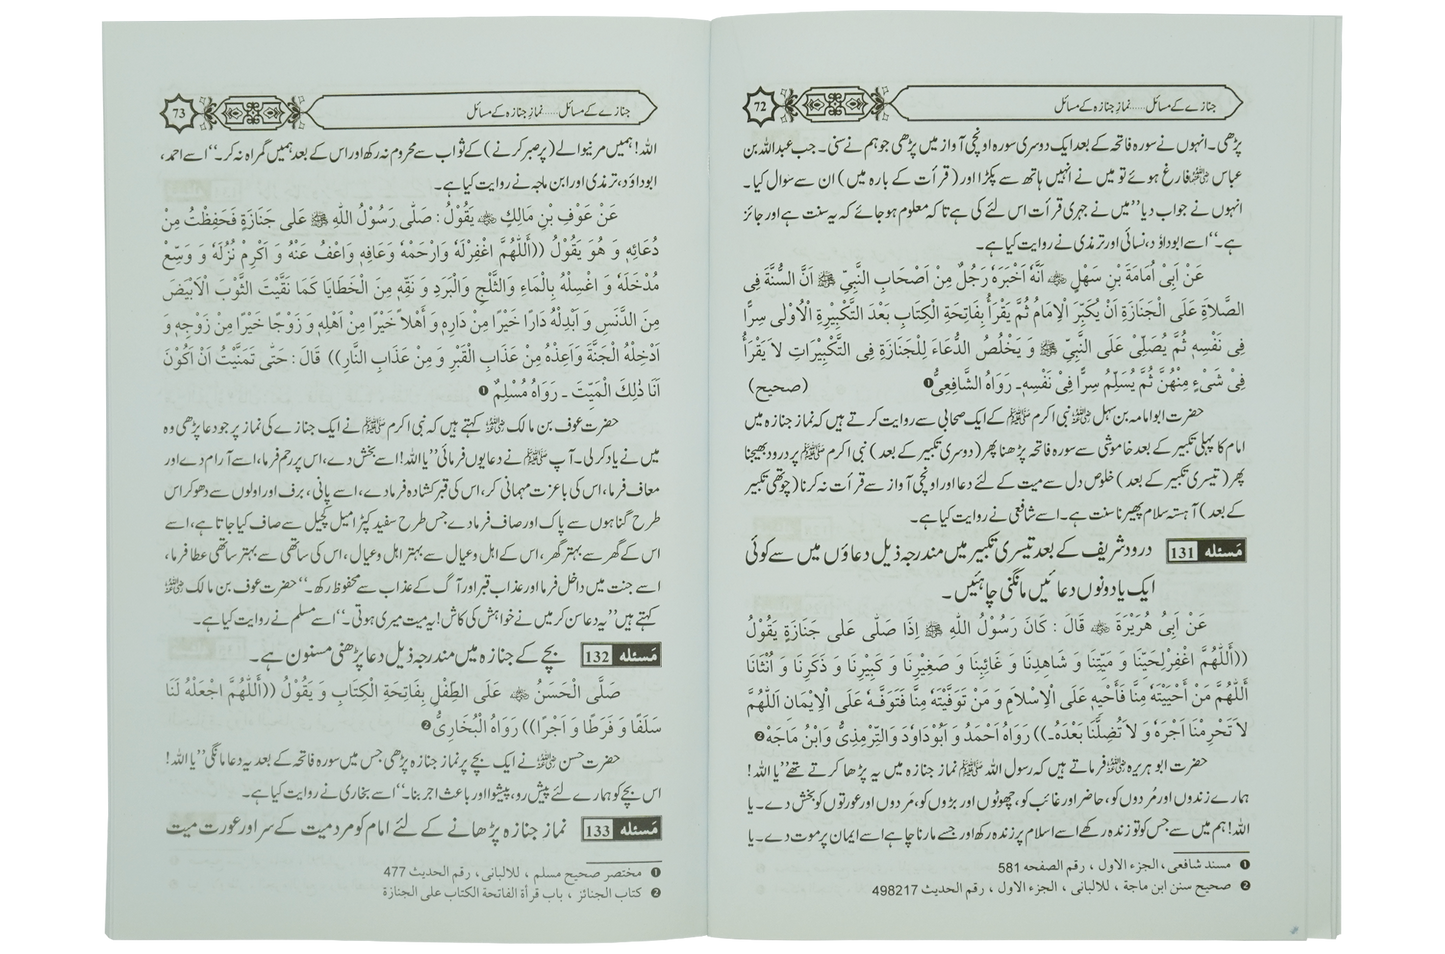 جنازے کے مسائل......نماز جنازہ کے مسائل
72
پڑھی۔ انہوں نے سورہ فاتحہ کے بعد ایک دوسری سورہ اونچی آواز میں پڑھی جو ہم نے سنی۔ جب عبداللہ بن
عباس رضی اللہ عنہ فارغ ہوئے تو میں نے انہیں ہاتھ سے پکڑا اور (قرأت کے بارہ میں) ان سے سوال کیا۔
انہوں نے جواب دیا ’’میں نے جہری قرأت اس لئے کی ہے تاکہ معلوم ہو جائے کہ یہ سنت ہے اور جائز
ہے۔‘‘ اسے ابوداؤد، نسائی اور ترمذی نے روایت کیا ہے۔
عَنْ اَبِیْ اُمَامَةَ بْنِ سَهْلٍ ﷺ اَنَّهُ اَخْبَرَهُ رَجُلٌ مِنْ اَصْحَابِ النَّبِيِّ ﷺ اَنَّ السُّنَّةَ فِی
الصَّلاَةِ عَلَی الْجَنَازَةِ اَنْ یُکَبِّرَ الْاِمَامُ ثُمَّ یَقْرَأُ بِفَاتِحَةِ الْکِتَابِ بَعْدَ التَّکْبِیْرَةِ الْاُوْلٰی سِرًّا
فِی نَفْسِهٖ ثُمَّ یُصَلِّیْ عَلَی النَّبِيِّ ﷺ وَ یَخْلُصُ الدُّعَاءَ لِلْجَنَازَةِ فِی التَّکْبِیْرَاتِ لاَ یَقْرَأُ
فِیْ شَیْءٍ مِنْهُنَّ ثُمَّ یُسَلِّمُ سِرًّا فِیْ نَفْسِهٖ۔ رَوَاهُ الشَّافِعِیُّ❶ (صحیح)
حضرت ابو امامہ بن سہل رضی اللہ عنہ نبی اکرم ﷺ کے ایک صحابی سے روایت کرتے ہیں کہ نماز جنازہ میں
امام کا پہلی تکبیر کے بعد خاموشی سے سورہ فاتحہ پڑھنا پھر (دوسری تکبیر کے بعد) نبی اکرم ﷺ پر درود بھیجنا
پھر (تیسری تکبیر کے بعد) خلوص دل سے میت کے لئے دعا اور اونچی آواز سے قرأت نہ کرنا (چوتھی تکبیر
کے بعد) آہستہ سلام پھیرنا سنت ہے۔ اسے شافعی نے روایت کیا ہے۔
مسئلہ 131 درود شریف کے بعد تیسری تکبیر میں مندرجہ ذیل دعاؤں میں سے کوئی
ایک یا دونوں دعائیں مانگنی چاہئیں۔
عَنْ اَبِیْ هُرَیْرَةَ رضی اللہ عنہ قَالَ : کَانَ رَسُوْلُ اللهِ ﷺ اِذَا صَلّٰی عَلٰی جَنَازَةٍ یَقُوْلُ
((أَللّٰهُمَّ اغْفِرْلِحَیِّنَا وَ مَیِّتِنَا وَ شَاهِدِنَا وَ غَائِبِنَا وَ صَغِیْرِنَا وَ کَبِیْرِنَا وَ ذَکَرِنَا وَ اُنْثَانَا
أَللّٰهُمَّ مَنْ أَحْیَیْتَهُ مِنَّا فَأَحْیِهٖ عَلَی الْاِسْلاَمِ وَ مَنْ تَوَفَّیْتَهُ مِنَّا فَتَوَفَّهُ عَلَی الْاِیْمَانِ اَللّٰهُمَّ
لاَ تَحْرِمْنَا اَجْرَهُ وَ لاَ تُضِلَّنَا بَعْدَهُ۔)) رَوَاهُ اَحْمَدُ وَ اَبُوْدَاوٗدَ وَالتِّرْمِذِیُّ وَابْنُ مَاجَهْ❷
حضرت ابو ہریرہ رضی اللہ عنہ فرماتے ہیں کہ رسول اللہ ﷺ نماز جنازہ میں یہ پڑھا کرتے تھے ’’یا اللہ!
ہمارے زندوں اور مُردوں کو، حاضر اور غائب کو، چھوٹوں اور بڑوں کو، مَردوں اور عورتوں کو بخش دے۔ یا
اللہ! ہم میں سے جس کو تو زندہ رکھے اسے اسلام پر زندہ رکھ اور جسے مارنا چاہے اسے ایمان پر موت دے۔ یا
❶ مسند شافعی ، الجزء الاول ، رقم الصفحہ 581
❷ صحیح سنن ابن ماجة ، للالبانی ، الجزء الاول ، رقم الحدیث 498217
جنازے کے مسائل......نماز جنازہ کے مسائل
73
اللہ! ہمیں مرنیوالے (پر صبر کرنے) کے ثواب سے محروم نہ رکھ اور اس کے بعد ہمیں گمراہ نہ کر۔‘‘ اسے احمد،
ابوداؤد، ترمذی اور ابن ماجہ نے روایت کیا ہے۔
عَنْ عَوْفِ بْنِ مَالِكٍ رضی اللہ عنہ یَقُوْلُ : صَلّٰی رَسُوْلُ اللهِ ﷺ عَلٰی جَنَازَةٍ فَحَفِظْتُ مِنْ
دُعَائِهٖ وَ هُوَ یَقُوْلُ ((أَللّٰهُمَّ اغْفِرْلَهُ وَارْحَمْهُ وَعَافِهٖ وَاعْفُ عَنْهُ وَ اَکْرِمْ نُزُلَهُ وَ وَسِّعْ
مُدْخَلَهُ وَ اغْسِلْهُ بِالْمَاءِ وَالثَّلْجِ وَالْبَرَدِ وَ نَقِّهٖ مِنَ الْخَطَایَا کَمَا نَقَّیْتَ الثَّوْبَ الْاَبْیَضَ
مِنَ الدَّنَسِ وَ اَبْدِلْهُ دَارًا خَیْرًا مِنْ دَارِهٖ وَ أَهْلاً خَیْرًا مِنْ اَهْلِهٖ وَ زَوْجًا خَیْرًا مِنْ زَوْجِهٖ وَ
اَدْخِلْهُ الْجَنَّةَ وَاَعِذْهُ مِنْ عَذَابِ الْقَبْرِ وَ مِنْ عَذَابِ النَّارِ)) قَالَ : حَتّٰی تَمَنَّیْتُ اَنْ اَکُوْنَ
اَنَا ذٰلِكَ الْمَیِّتَ ۔ رَوَاهُ مُسْلِمٌ❶
حضرت عوف بن مالک رضی اللہ عنہ کہتے ہیں کہ نبی اکرم ﷺ نے ایک جنازے کی نماز پر جو دعا پڑھی وہ
میں نے یاد کر لی۔ آپ ﷺ نے دعا یوں فرمائی ’’یا اللہ! اسے بخش دے، اس پر رحم فرما، اسے آرام دے اور
معاف فرما، اس کی باعزت مہمانی کر، اس کی قبر کشادہ فرما دے، اسے پانی، برف اور اولوں سے دھو کر اس
طرح گناہوں سے پاک اور صاف فرما دے جس طرح سفید کپڑا میل کچیل سے صاف کیا جاتا ہے، اسے
اس کے گھر سے بہتر گھر، اس کے اہل و عیال سے بہتر اہل و عیال، اس کی ساتھی سے بہتر ساتھی عطا فرما،
اسے جنت میں داخل فرما اور عذاب قبر اور آگ کے عذاب سے محفوظ رکھ۔‘‘ حضرت عوف بن مالک رضی اللہ عنہ
کہتے ہیں ’’یہ دعا سن کر میں نے خواہش کی کاش! یہ میت میری ہوتی۔‘‘ اسے مسلم نے روایت کیا ہے۔
مسئلہ 132 بچے کے جنازہ میں مندرجہ ذیل دعا پڑھنی مسنون ہے۔
صَلَّی الْحَسَنُ رضی اللہ عنہ عَلَی الطِّفْلِ بِفَاتِحَةِ الْکِتَابِ وَ یَقُوْلُ ((أَللّٰهُمَّ اجْعَلْهُ لَنَا
سَلَفًا وَ فَرَطًا وَ اَجْرًا)) رَوَاهُ الْبُخَارِیُّ❷
حضرت حسن رضی اللہ عنہ نے ایک بچے پر نماز جنازہ پڑھی جس میں سورہ فاتحہ کے بعد یہ دعا مانگی ’’یا اللہ!
اس بچے کو ہمارے لئے پیش رو، پیشوا اور باعث اجر بنا۔‘‘ اسے بخاری نے روایت کیا ہے۔
مسئلہ 133 نماز جنازہ پڑھانے کے لئے امام کو مرد میت کے سر اور عورت میت
❶ مختصر صحیح مسلم ، للالبانی ، رقم الحدیث 477
❷ کتاب الجنائز ، باب قرأة الفاتحة الکتاب علی الجنازة